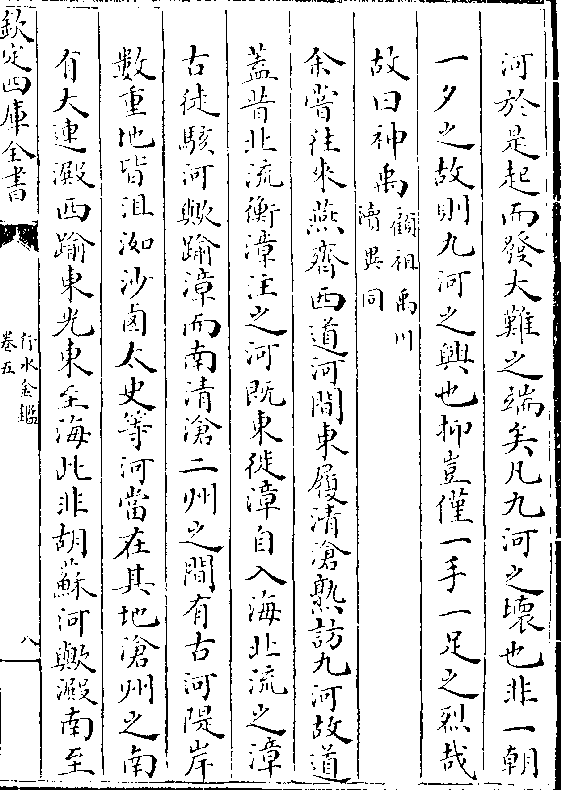 河於是起而發大難之端矣凡九河之壞也非一朝
一夕之故則九河之興也抑豈僅一手一足之烈哉
故曰神禹顧祖禹川
瀆異同
余嘗往來燕齊西道河間東履清滄熟訪九河故道
蓋昔北流衡漳注之河既東徙漳自入海北流之漳
古徒駭河歟踰漳而南清滄二州之間有古河隄岸
數重地皆沮洳沙鹵太史等河當在其地滄州之南
有大連澱西踰東光東至海此非胡蘇河歟澱南至
欽定四庫全書
行水金鑑
卷五
八